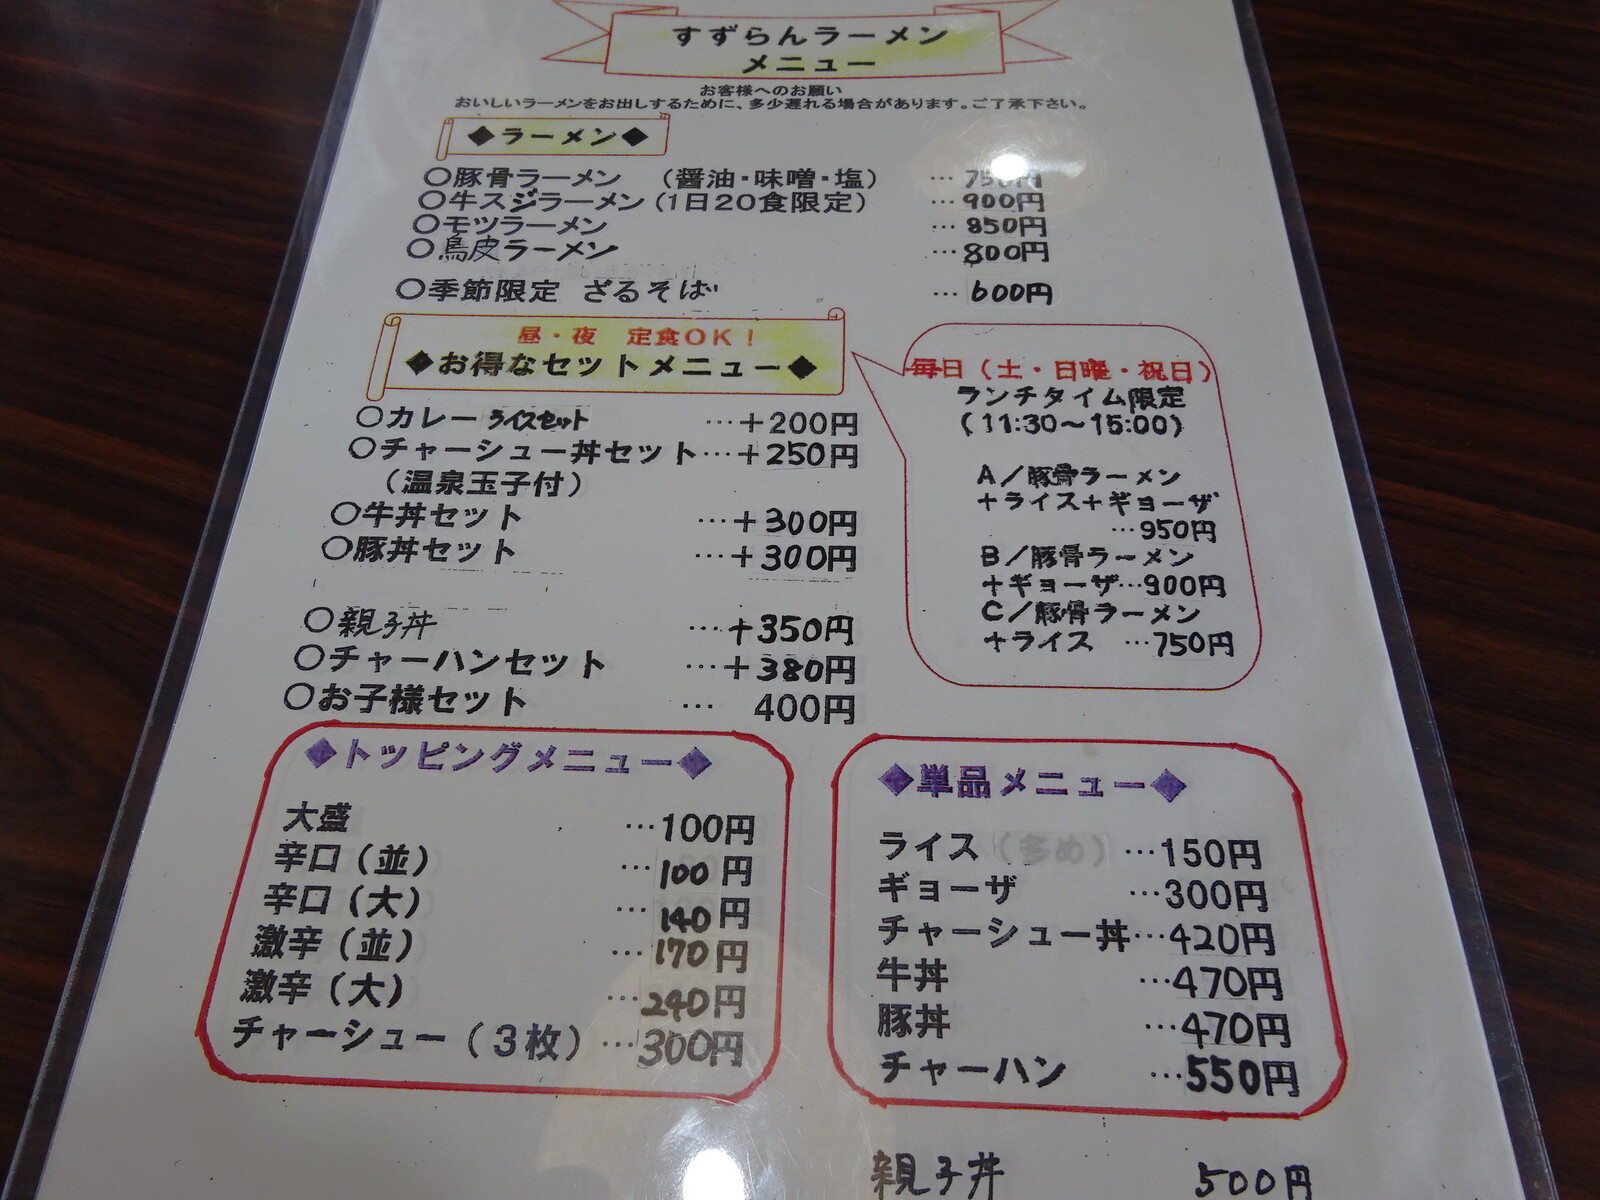 すずらんラーメン
メニュー
お客様へのお願い
おいしいラーメンをお出しするために、多少遅れる場合があります。ご了承下さい。
◆ラーメン◆
○豚骨ラーメン （醤油・味噌・塩） … 750円
○牛スジラーメン（1日20食限定） … 900円
○モツラーメン … 850円
○鳥皮ラーメン …800円
○季節限定 ざるそば … 600円
昼・夜 定食OK！
◆お得なセットメニュー◆
○カレーライスセット …＋200円
○チャーシュー丼セット…＋250円
（温泉玉子付）
○牛丼セット …＋300円
○豚丼セット …＋300円
○親子丼 …＋350円
○チャーハンセット …＋380円
○お子様セット … 400円
毎日（土・日曜・祝日）
ランチタイム限定
（11:30～15:00）
A／豚骨ラーメン
＋ライス＋ギョーザ
…950円
B／豚骨ラーメン
＋ギョーザ…900円
C／豚骨ラーメン
＋ライス …750円
◆トッピングメニュー◆
大盛 …100円
辛口（並） …100円
辛口（大） …140円
激辛（並） …170円
激辛（大） …240円
チャーシュー（3枚）…300円
◆単品メニュー◆
ライス（多め）…150円
ギョーザ …300円
チャーシュー丼…420円
牛丼 …470円
豚丼 …470円
チャーハン …550円
親子丼 500円